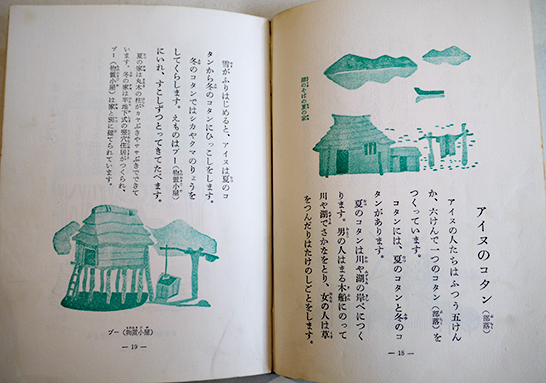 アイヌのコタン(部落)
アイヌの人たちはふつう五けん
か、六けんで一つのコタン(部落)を
つくっています。
コタンには、夏のコタンと冬のコ
タンがあります。
夏のコタンは川や湖の岸べにつく
ります。男の人はまる木船にのって
川や湖でさかなをとり、女の人は草
をつんだりはたけのしごとをします。
湖のそばの夏の家
— 18 —
雪がふりはじめると、アイヌは夏のコ
タンから冬のコタンにひっこしをします。
冬のコタンではシカやクマのりょうを
してくらします。えものはプー(物置小屋)
にいれ、すこしずつとってきてたべます。
夏の家は丸木の柱がカヤぶきやササぶきでできて
います。冬の家は半地下式の竪穴住居がつくられ、
プー(物置小屋)は家と別に建てられています。
プー(物置小屋)
— 19 —